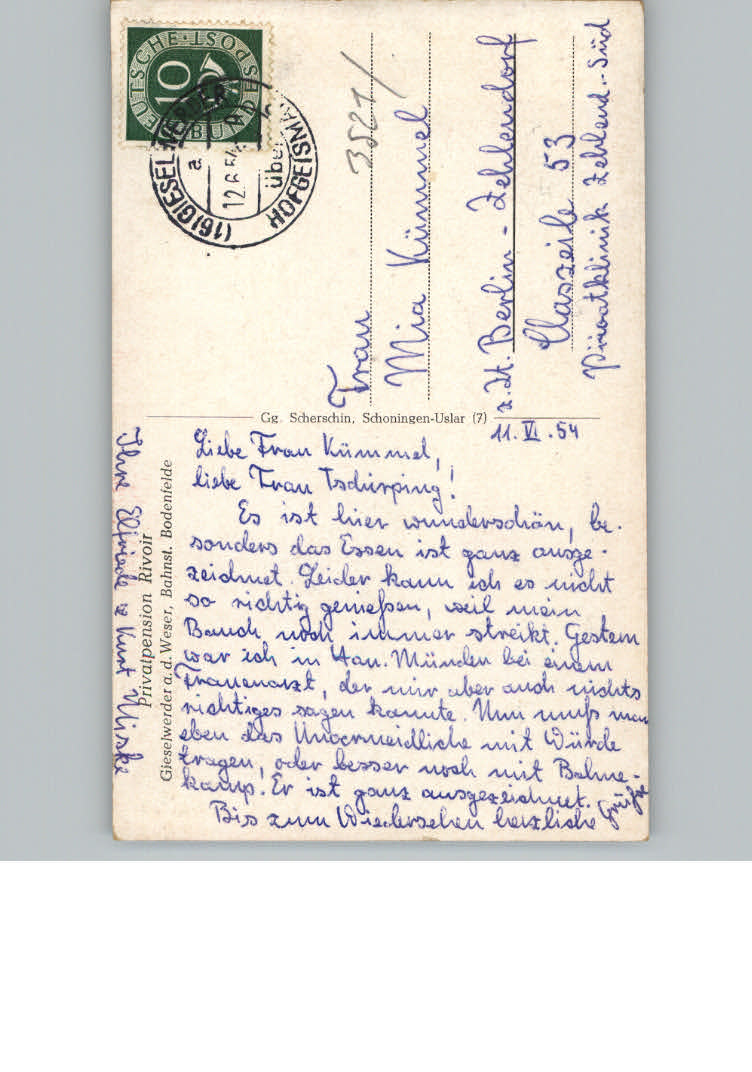 DEUTSCHE BUNDESPOST
10
(16) GIESELWERDER
über HOFGEISMAR
a
12.6.54
3521/
Frau
Mia Kümmel
z. Zt. Berlin - Zehlendorf
Claszeile 53
Privatklinik Zehlend.-Süd
Gg. Scherschin, Schoningen-Uslar (7)
11. VI. 54
Liebe Frau Kümmel,
liebe Frau Tschirping!
Es ist hier wunderschön, be-
sonders das Essen ist ganz ausge-
zeichnet. Leider kann ich es nicht
so richtig genießen, weil mein
Bauch noch immer streikt. Gestern
war ich in Han. Münden bei einem
Frauenarzt, der mir aber auch nichts
richtiges sagen konnte. Nun muß man
eben das Unvermeidliche mit Würde
tragen, oder besser noch mit
Er ist ganz ausgezeichnet.
Bis zum Wiedersehen herzliche Grüße
Ihre Elfriede u. Kurt
Privatpension Rivoir
Gieselwerder a. d. Weser, Bahnst. Bodenfelde